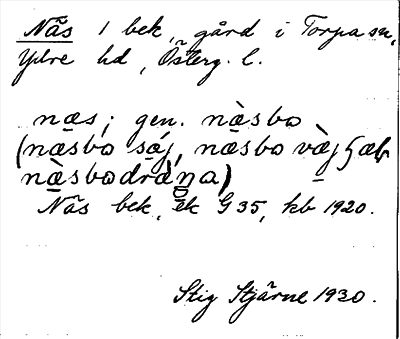 Näs 1 bek., gård i Torpa sn,
Ydre hd, Österg. l.
næs; gen. næ̀sbo
(næsbo sǿj, næsbo væ̀j
næ̀sbodràŋa)
Näs bek., ek G 35, kb 1920.
Stig Stjärne 1930.